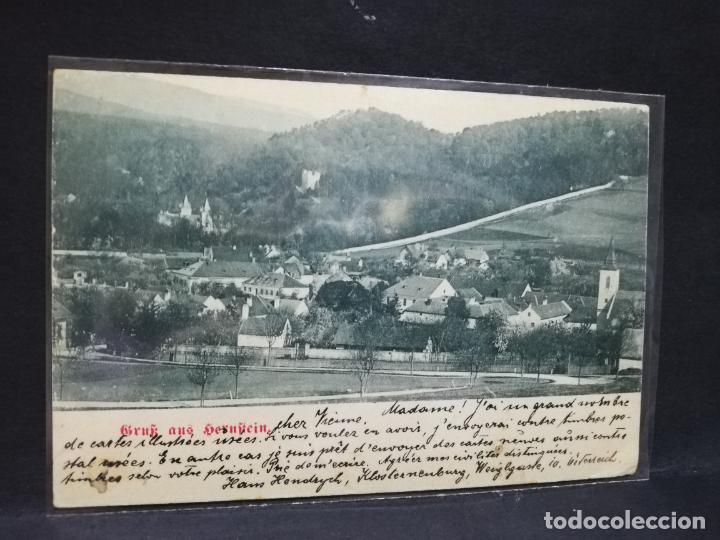 Gruß aus Hernstein,
chez Vienne. Madame! J'ai un grand nombre
de cartes illustrées usées. Si vous voulez en avoir, j'envoyerai contre timbres po-
stal usées. En autre cas je suis prêt d'envoyer des cartes neuves aussi contre
timbres selon votre plaisir. Prie de m'ecrire. Agréez mes civilités distinguées.
Hans Hendrych, Klosterneuburg, Weiglgasse, 10. Österreich.
todocoleccion.net